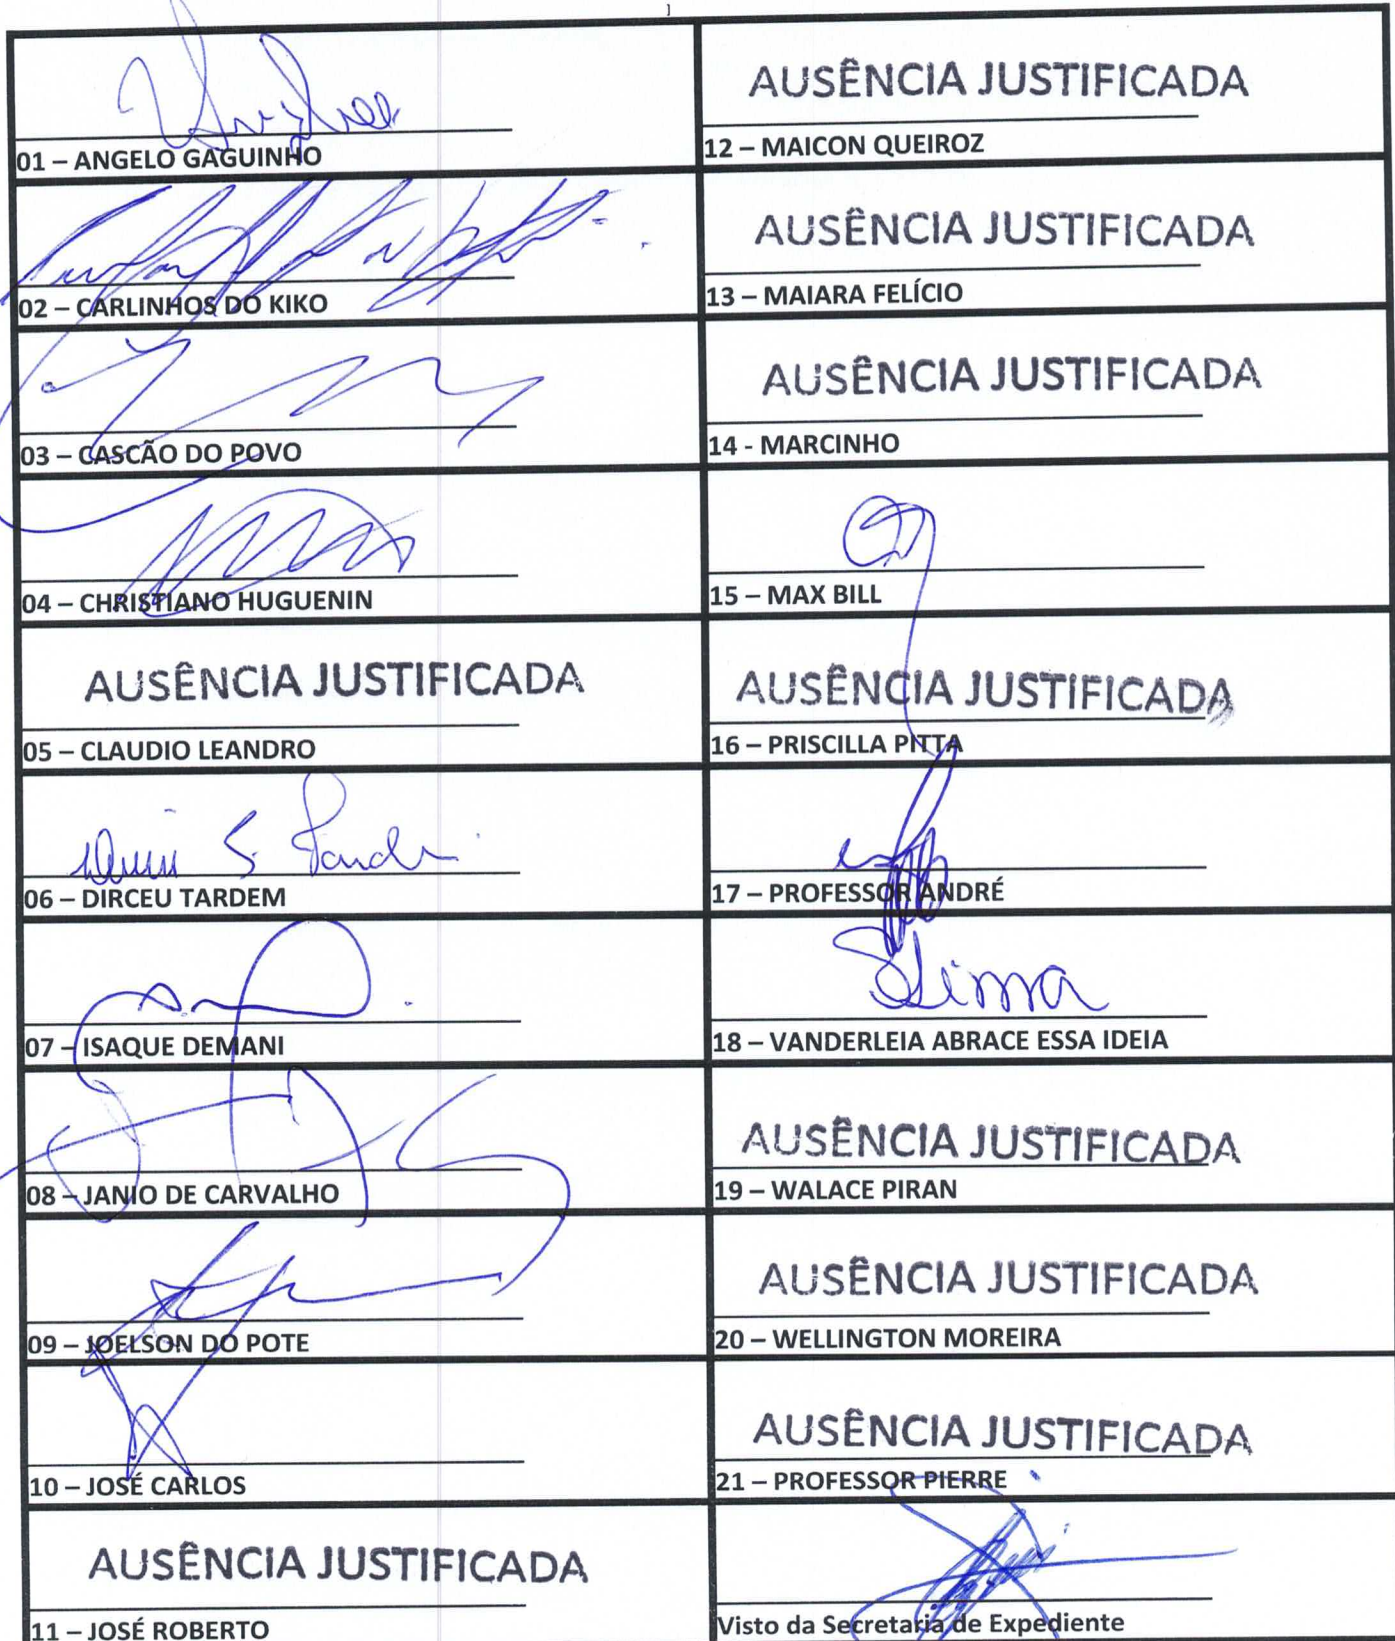 01 – ANGELO GAGUINHO
02 – CARLINHOS DO KIKO
03 – CASCÃO DO POVO
04 – CHRISTIANO HUGUENIN
AUSÊNCIA JUSTIFICADA
05 – CLAUDIO LEANDRO
06 – DIRCEU TARDEM
07 – ISAQUE DEMANI
08 – JANIO DE CARVALHO
09 – JOELSON DO POTE
10 – JOSÉ CARLOS
AUSÊNCIA JUSTIFICADA
11 – JOSÉ ROBERTO
AUSÊNCIA JUSTIFICADA
12 – MAICON QUEIROZ
AUSÊNCIA JUSTIFICADA
13 – MAIARA FELÍCIO
AUSÊNCIA JUSTIFICADA
14 - MARCINHO
15 – MAX BILL
AUSÊNCIA JUSTIFICADA
16 – PRISCILLA PITTA
17 – PROFESSOR ANDRÉ
Lima
18 – VANDERLEIA ABRACE ESSA IDEIA
AUSÊNCIA JUSTIFICADA
19 – WALACE PIRAN
AUSÊNCIA JUSTIFICADA
20 – WELLINGTON MOREIRA
AUSÊNCIA JUSTIFICADA
21 – PROFESSOR PIERRE
Visto da Secretaria de Expediente